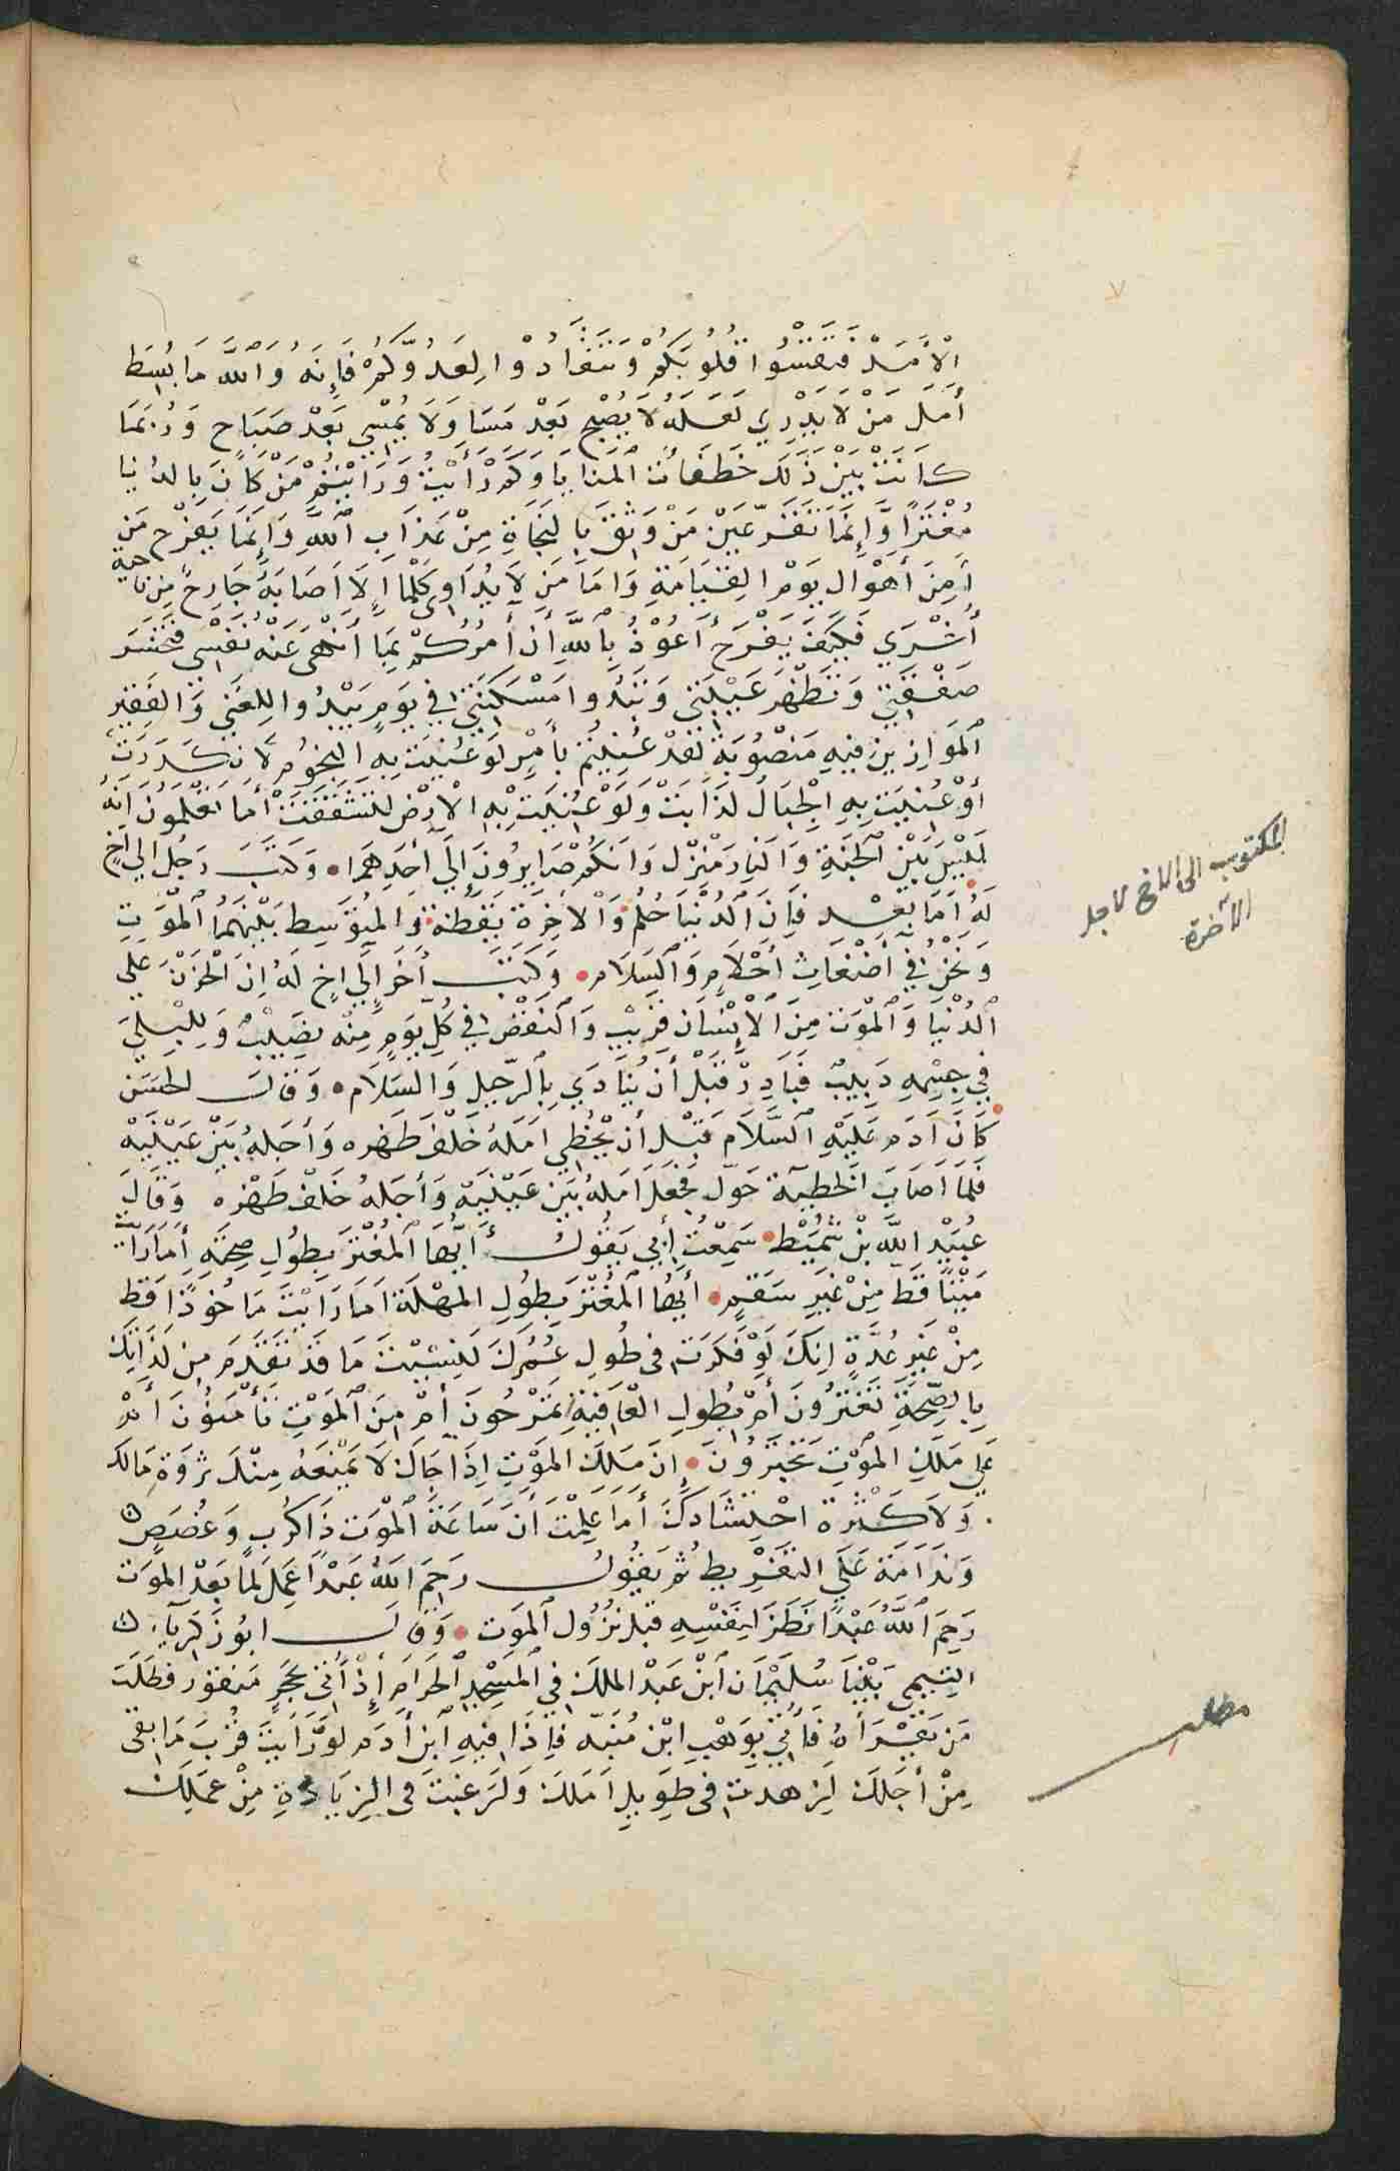 الْأَمَدُ فَتَقْسُوا قُلُوبُكُمْ وَتَنْقَادُوْا لِعَدُوِّكُمْ فَإِنَّهُ وَاللّهِ مَا بُسِطَ
أَمَلُ مَنْ لَا يَدْرِي لَعَلَّهُ لَا يُصْبِحُ بَعْدَ مَسَاءٍ وَلَا يُمْسِي بَعْدَ صَبَاحٍ وَرُبَمَا
كَانَتْ بَيْنَ ذَلِكَ خَطَفَاتُ الْمَنَايَا وَكَمْ رَأَيْتُ وَرَأَيْتُمْ مَنْ كَانَ بِالدُنْيَا
مُغْتَرًا وَإِنَّمَا تَقَرُّ عَيْنُ مَنْ وَثِقَ بِالنَجَاةِ مِنْ عَذَابِ اللهِ وَإِنَّمَا يَفْرَحُ مَن
أَمِنَ أَهْوَالَ يَوْمِ الِقِيَامَةِ وَامَا مَن لَا يُدَاوِي كَلْمًا إِلَا اَصَابَهُ جَارِحٌ مِن نَاحِيَةٍ
أُخْرَي فَكَيَفَ يَفْرَحُ أَعُوْذُ بِاللهِ أَنْ أَمُرَكُمْ بِمَا أَنْهَى عَنْهُ نَفْسِي فَتَخْسَرَ
صَفْقَتِي وَتَظْهَرَ عَيْلَتِي وَتَبْدُوا مَسْكَنَتِي فِي يَوْمٍ يَبْدُوا الِغَنِي وَالفَقِيْرُ
اَلْمَوَازِين فِيهِ مَنْصُوبَةٌ لَقَدْ عُنِيتُمْ بِأَمْرٍ لَوْ عُنِيَتْ بِهِ النُجُومُ لَانْكَدَرَتْ
أَوْ عُنِيَتْ بِهِ الْجِبَالُ لَذَابَتْ وَلَوْ عُنِيَتْ بِهِ الْاَرْضُ لَتَشَقَقَتْ أَمَا تَعْلَمُونَ اَنَهُ
لَيْسَ بَيْنَ الْجَنَةِ وَالنَارِ مَنْزِلٌ وَاَنَكُمْ صَايِرُونَ إِلَي أَحَدِهِمَا • وَكَتَبَ رَجُلٌ اِلي اَخٍ
لَهُ اَمَا بَعْد فَإِنَ الْدُنْيَا حُلُمٌ وَالْاَخِرَةُ يَقَظَةٌ وَالمُتَوَسِطُ بَيْنَهُمَا الْمَوْتُ
وَنَحْنُ فِي أَضْغَاثِ أَحْلَامٍ وَالسَلَام • وَكَتَبَ اُخَر إِلَي اخٍ لَهُ اِنَ الْحُزْنَ عَلَي
الدُنْيَا وَالمْوَت مِنَ الْاِنْسَان قَرِيْب وَالنَقْصُ فِي كُلِ يَوْمٍ مِنْه نَصِيْبٌ وَلِلْبِلَي
فِي جِسْمِهِ دَبِيبٌ فَبَادِرْ قَبْلَ أَنْ تُنَادَي بِالْرَحِيلِ وَالسَلَام • وَقَالَ الحسَن
كَانَ اَدَمَ عَلَيْهِ السَّلَام قَبْل أن يُخْطِي اَمَلَهُ خَلْفَ ظَهْرِه وَأجَلَهُ بَيْنَ عَيْنَيْه
فَلَمَا اَصَابَ الخَطِيئَة حَوّل فَجَعَلَ اَمَلَهُ بَيْن عَيْنَيْه وَأجَلهُ خَلْفَ ظَهْرِه وَقَالَ
عُبَيْد اللَّه بْن شُمَيْط • سَمِعْتُ أَبِي يَقُول أَيُّهَا المُغْتَرّ بِطُولِ صِحَتِهِ أَمَا رَأَيْتَ
مَيْتًا قَطُ مِنْ غَيْرِ سَقَمٍ • أَيُهَا المُغْتَرّ بِطُولِ المُهْلَةَ اَمَا رَايْتَ مَاخُوذًا قَط
مِنْ غَيْرِ عُدَّةٍ اِنَكَ لَوْ فَكَرْتَ فِي طُولِ عُمُرِكَ لَنَسِيْتَ مَا قَدْ تَقَدَمَ مِن لَذَاتِكَ
بِالصِّحَةِ تَغْتَرُونَ أمْ بِطُولِ الْعَافِيَةِ تَمْرَحُونَ اَمْ مِنَ المَوْتِ تَأمَنُونَ أَمْ
عَلَي مَلَكِ المْوْتِ تَجْتَرُونَ • إِنَ مَلَكَ المَوْتِ إِذَا جَاكَ لَا يَمْنَعَهُ مِنْكَ ثَرْوَة مَالِكَ
وَلَا كَثْرَة احْتِشَادِكَ أَمَا عَلِمْتَ أَنَ سَاعَةَ المْوْت ذَا كُرَبٍ وَغُصَصٍ
وَنَدَامَة عَلَي التَفْرِيط ثُم يَقُول رَحِمَ اللَّهُ عَبْدًا عَمِلَ لِمَا بَعْدَ المَوْت
رَحِمَ اللَّهُ عَبْدًا نَظَرَ لِنَفْسِهِ قَبْلَ نُزُول المَوت • وَقَالَ ابُو زَكَرِيَا
التيمي بَيْنَا سُلَيْمَان اَبْنْ عَبْد الملك فِي المَسِجِد الْحَرَامَ إِذْ أُتِيَ بِحَجَرٍ مَنقوُر فطَلَبَ
مَن يَقْرَأهُ فَأُتِيَ بِوَهْبِ ابْن مُنَبّه فَاِذَا فِيهِ ابن أدَم لَوْ رَايْتَ قُرْبَ مَا بقى
مِنْ أَجَلِكَ لَزَهدت فِي طَوِيلِ اَمَلَكَ وَلَرَغِبْتَ فِي الزِيَادَةِ مِنْ عَمَلِكَ
المكتوب الى الاخ لاجل
الآخرة
مطلب